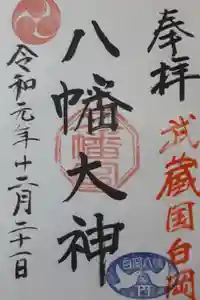 奉拝
武蔵国白岡
八幡大神
令和元年十二月二十一日
白岡八幡